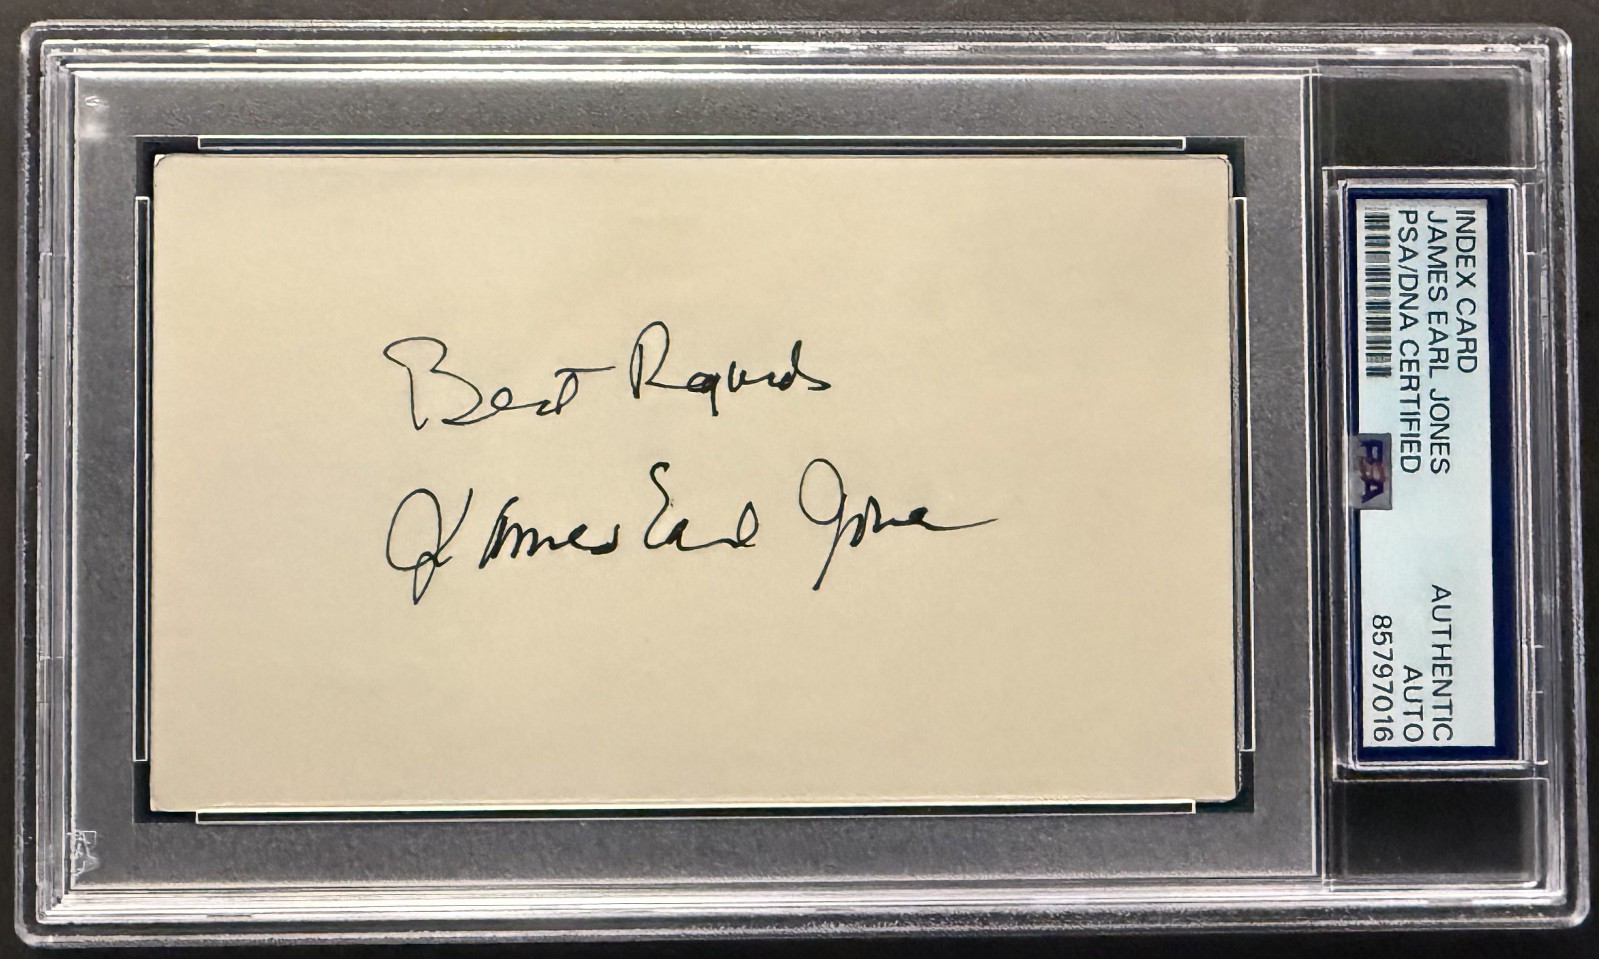 Best Regards
James Earl Jones
INDEX CARD
JAMES EARL JONES
PSA/DNA CERTIFIED
AUTHENTIC
AUTO
85797016
PSA